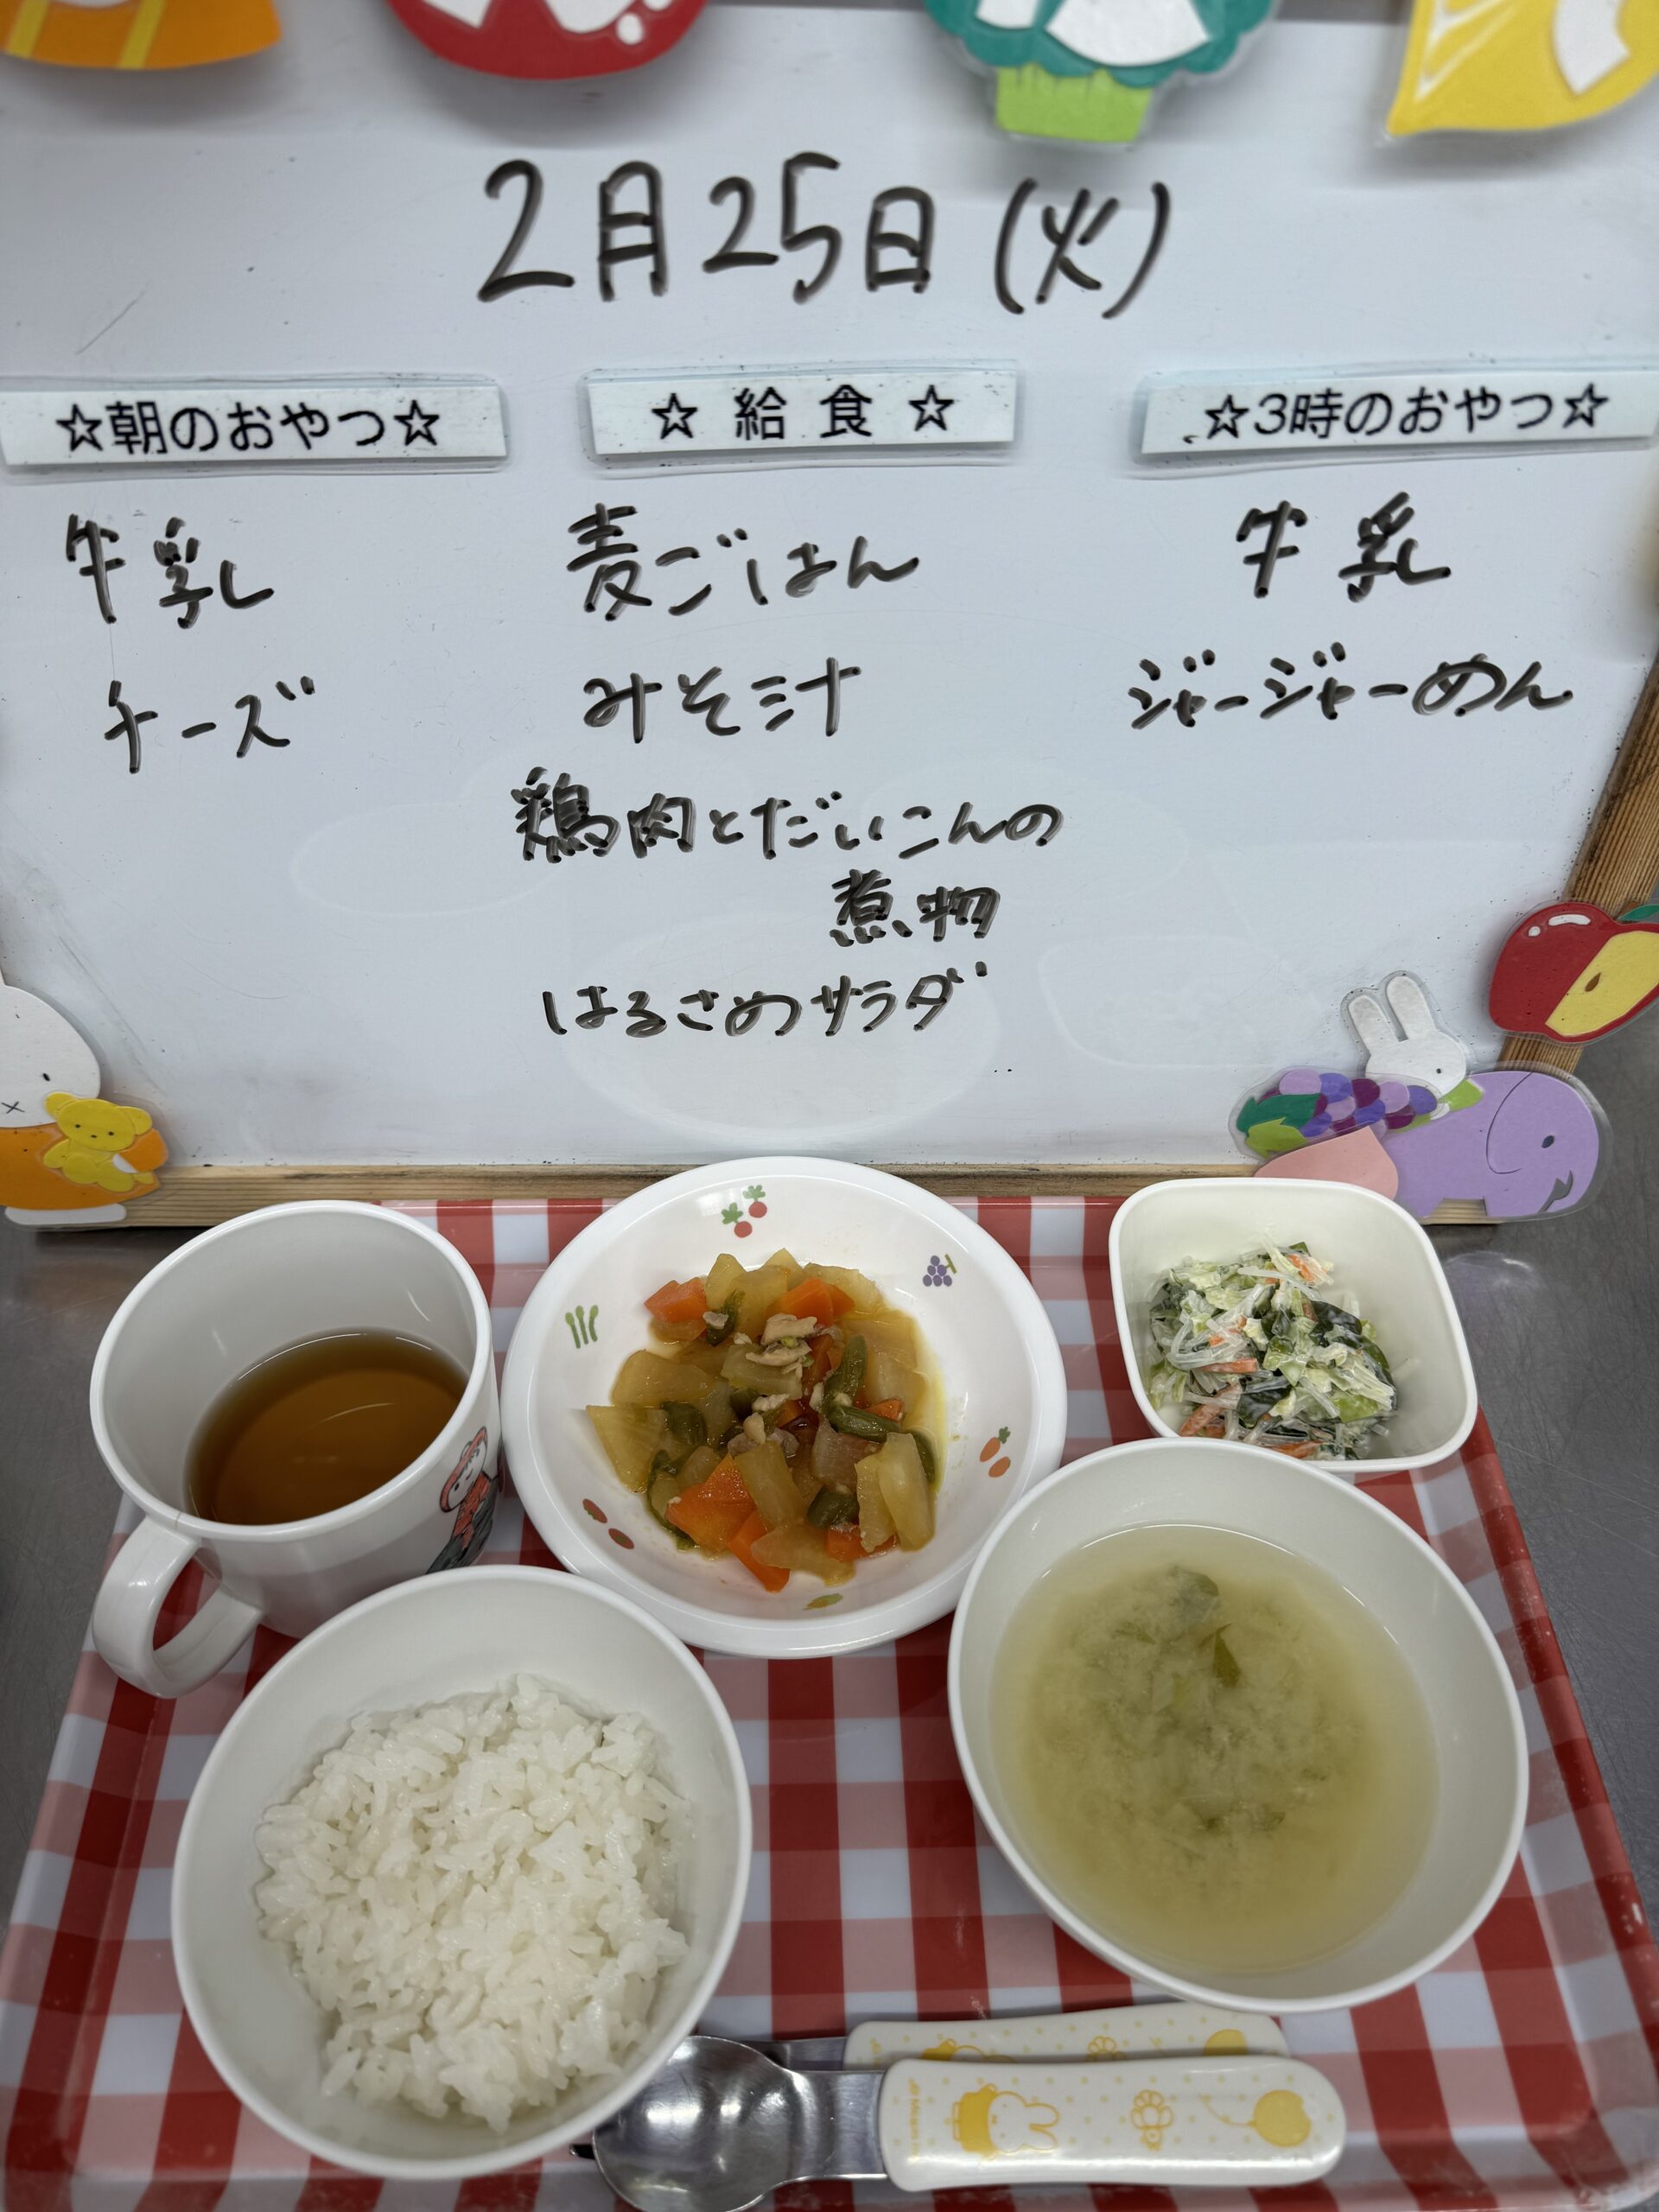 2月25日(火)
☆朝のおやつ☆
牛乳
チーズ
☆ 給 食 ☆
麦ごはん
みそ汁
鶏肉とだいこんの
煮物
はるさめサラダ
☆3時のおやつ☆
牛乳
ジャージャーめん